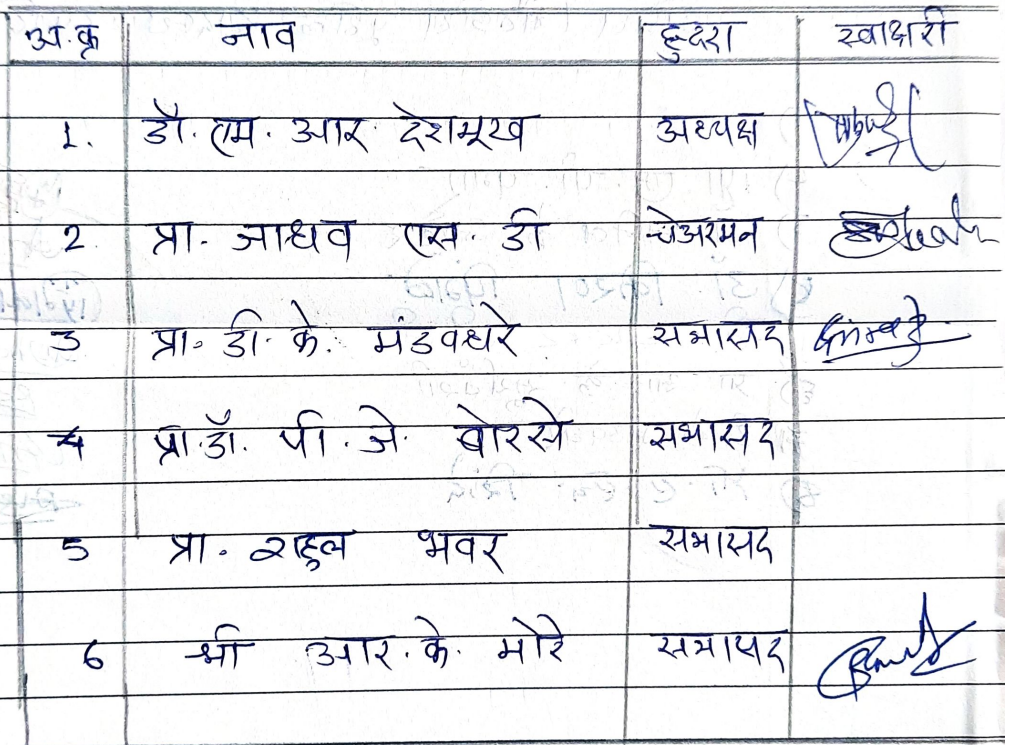 अ.क्र नाव हुद्दा स्वाक्षरी
1. डॉ. एम. आर. देशमुख अध्यक्ष
2 प्रा. जाधव एस. डी चेअरमन
3 प्रा. डी. के. मंडवधरे सभासद
4 प्रा.डॉ. पी. जे. बोरसे सभासद
5 प्रा. राहुल भवर सभासद
6 श्री आर. के. मोरे सभासद